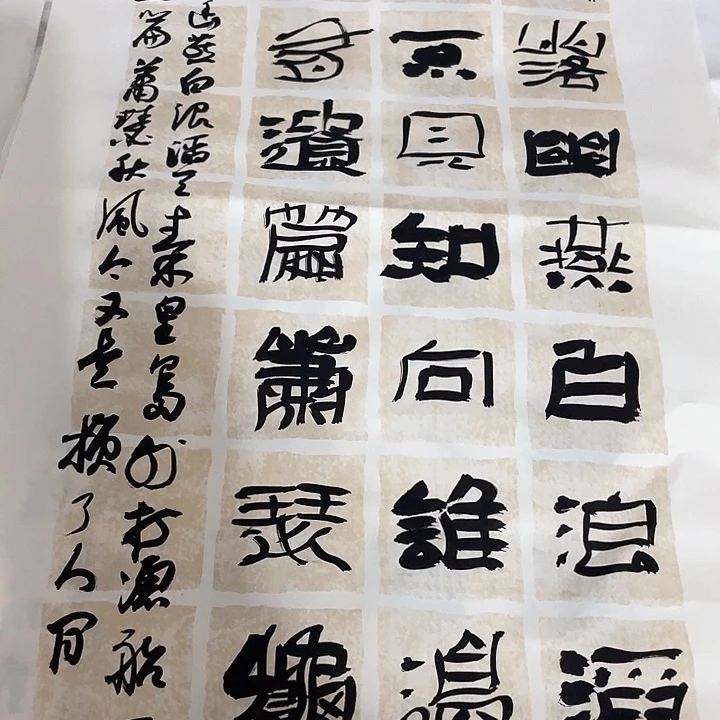 落幽燕白浪滔
不見知向誰邊
有遺篇蕭瑟秋
幽燕白浪滔天秦皇島外打漁船
篇蕭瑟秋風今又是換了人間